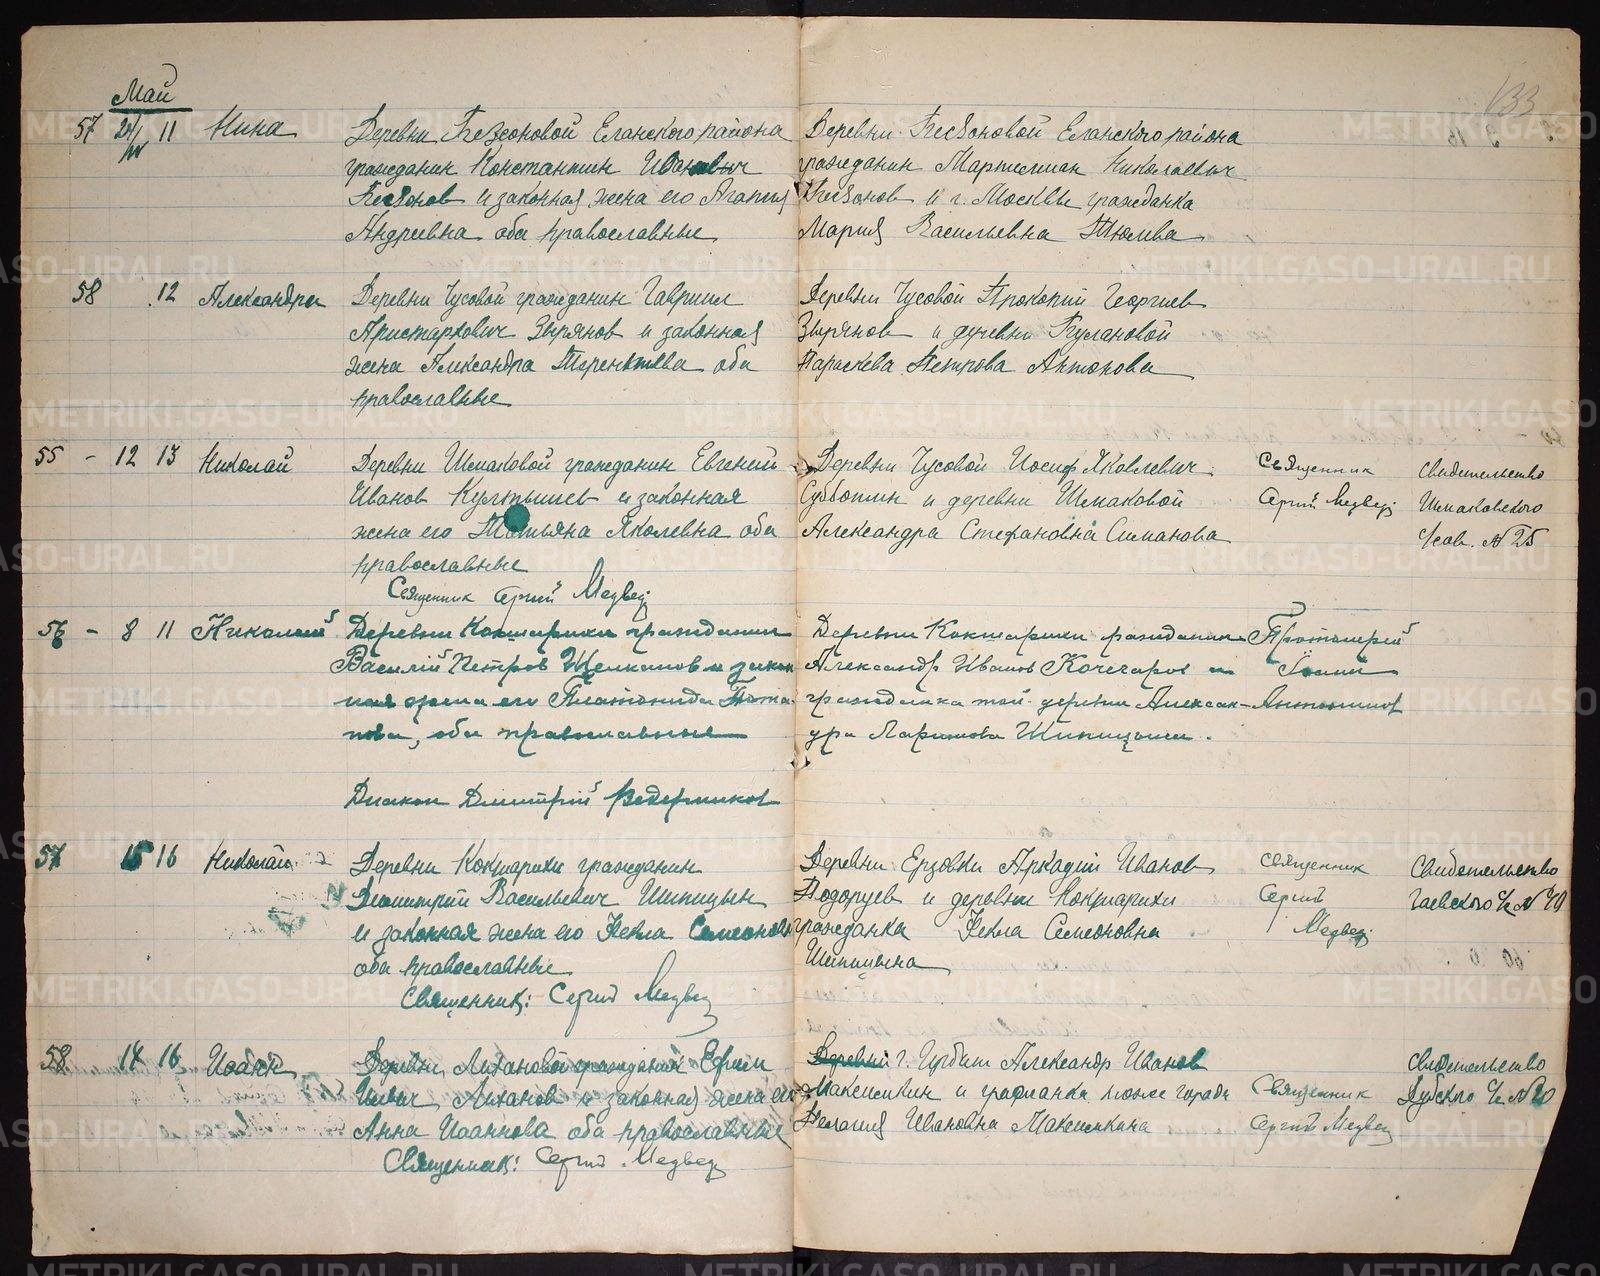 133
Май
57 24/IV 11 Нина Деревни Бессоновой Еланского района Деревни Бессоновой Еланского района
гражданин Константин Иванович гражданин Мартимиан Николаевич
Бессонов и законная жена его Агапия Бессонов и г. Москвы гражданка
Андреевна оба православные Мария Васильевна
58 12 Александра Деревни Чусовой гражданин Гавриил Деревни Чусовой Прокопий Георгиев
Аристархович Зырянов и законная Зырянов и деревни Булановой
жена Александра Терентьева оба Параскева Петрова Антонова
православные
55 - 12 13 Николай Деревни Шмаковой гражданин Евгений Деревни Чусовой Иосиф Яковлевич Священник Свидетельство
Иванов Культышев и законная Субботин и деревни Шмаковой Сергий Медвед Шмаковского
жена его Татьяна Яколевна оба Александра Стефановна Симанова с/сов. № 25
православные
Священник Сергий Медвед
56 - 8 11 Николай Деревни Кокшарихи гражданин Деревни Кокшарихи гражданин Протоиерей
Василий Петров Щелканов и закон Александр Иванов Кочегаров и Иоанн
ная жена его Платонида Пота- гражданка той деревни Алексан-
пова, оба православные дра Ларионова Шипицына.
Диакон Димитрий Ведерников
57 15 16 Николай Деревни Кокшарихи гражданин Деревни Ерзовки Аркадий Иванов Священник Свидетельство
Димитрий Васильевич Шипицын и деревни Кокшарихи Сергий Гаевского с/с №
и законная жена его Фекла Семеонова гражданка Фекла Семеоновна Медвед
оба православные Шипицына
Священник: Сергий Медвед
58 14 16 Иоанн Деревни Лихановой гражданин Ефим Деревни г. Ирбит Александр Иванов Свидетельство
Лиханов и законная жена его Максимкин и гражданка тоже города Священник Дубского с/с № 20
Анна Иоаннова оба православные Пелагия Ивановна Максимкина Сергий Медвед
Священник: Сергий Медвед
METRIKI.GASO-URAL.RU